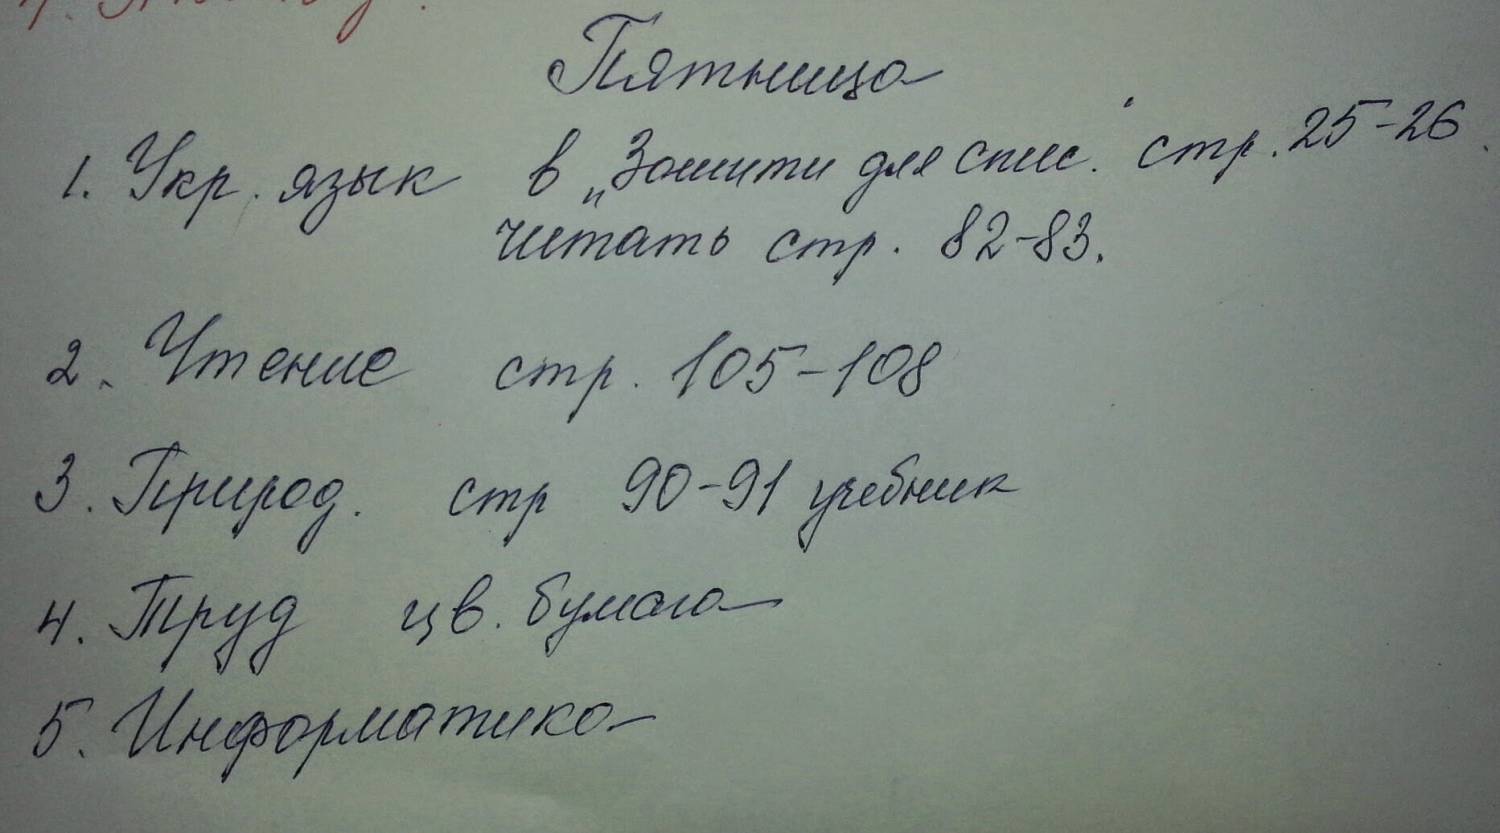 Пятница
1. Укр. язык в „Зошити для спис. стр. 25-26.
читать стр. 82-83.
2. Чтение стр. 105-108
3. Природ. стр 90-91 учебник
4. Труд цв. бумага
5. Информатика